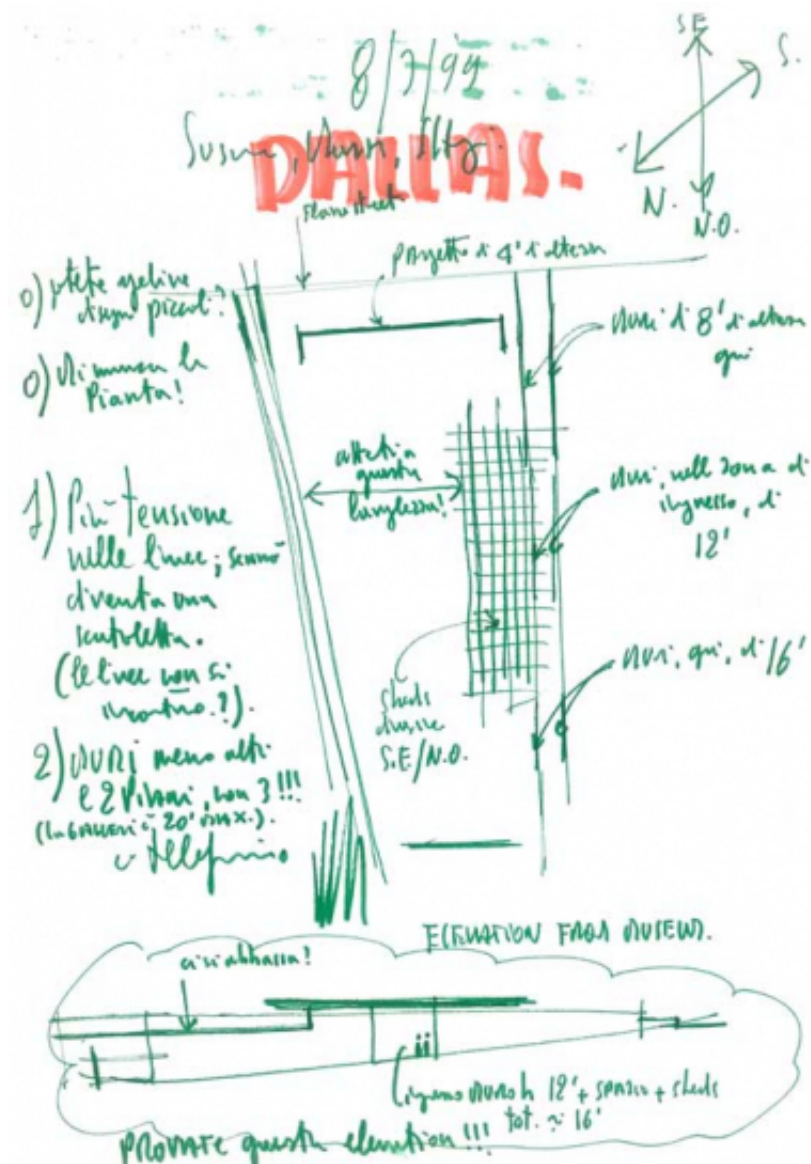 8/3/99
DALLAS.
S.E
S.
N.
N.O.
progetto di 4' d'altezza
0)
disegni piccoli?
0) Mi manca la
Pianta!
muri di 8' d'altezza
qui
attenti a
questa
larghezza!
muri, nella zona di
ingresso, di
12'
1) Più tensione
nelle linee; sennò
diventa una
scatoletta.
(le linee non si
incontrano?).
muri, qui, di 16'
sheds
S.E/N.O.
2) MURI meno alti
e 2 Piani, non 3!!!
20' MAX.).
Telefonino
ELEVATION FROM MUSEUM.
ci si abbassa!
ingresso MURO h 12' + SPAZIO + sheds
tot. ~ 16'
PROVATE questa elevation!!!